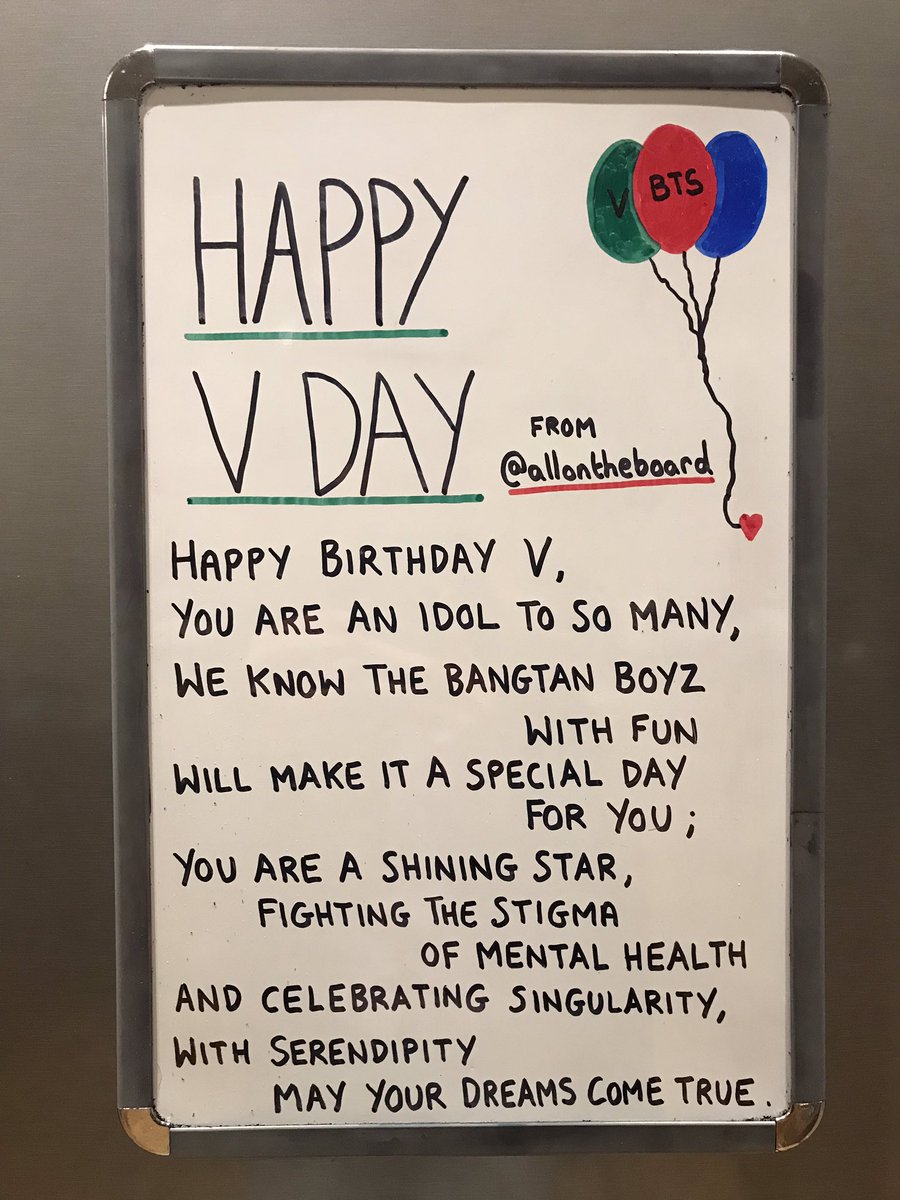 HAPPY
V DAY
V
BTS
FROM
@allontheboard
HAPPY BIRTHDAY V,
YOU ARE AN IDOL TO SO MANY,
WE KNOW THE BANGTAN BOYZ
WITH FUN
WILL MAKE IT A SPECIAL DAY
FOR YOU;
YOU ARE A SHINING STAR,
FIGHTING THE STIGMA
OF MENTAL HEALTH
AND CELEBRATING SINGULARITY,
WITH SERENDIPITY
MAY YOUR DREAMS COME TRUE.